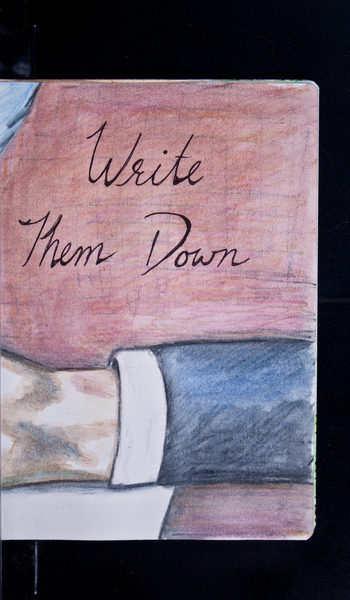 Write
Them Down